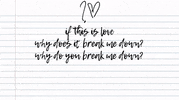 ?♡
if this is love
why does it break me down?
why do you break me down?